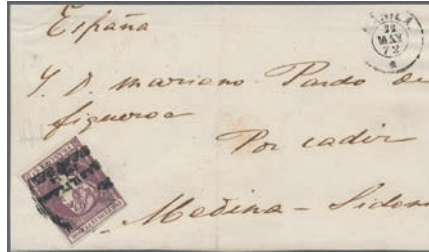 España
MANILA
22
MAY
72
S. D. Mariano Pardo de
figueroa
Por cadiz
Medina - Sidon